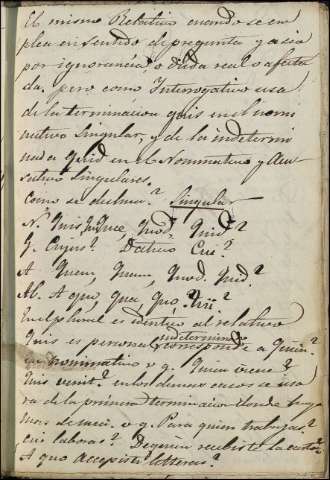 El mismo Relativo cuando se em
plea en sentido de pregunta y a sea
por ignorancia, o duda real o afecta
da, pero como Interrogativo usa
de la terminacion quis en el nomi
nativo singular, y de la indetermi
nada quid en el Nominativo y Acu
sativo Singulares.
Como se declina? Singular
N. Quis, Quae, Quod, Quid?
G. Cujus? Dativo Cui?
A Quem, Quam, Quod. Quid?
Ab. A quo, Qua, Quo.
En el plural es identico al relativo
Quis es personal indeterminado corresponde a Quien?
en nominativo v g. Quien viene?
Quis venit? en los demas casos se usa
ra de la primera terminacion donde haya
mas de una. v g. Para quien trabajas?
cui laboras? De quien recibiste la carta?
A quo accepisti litteras?